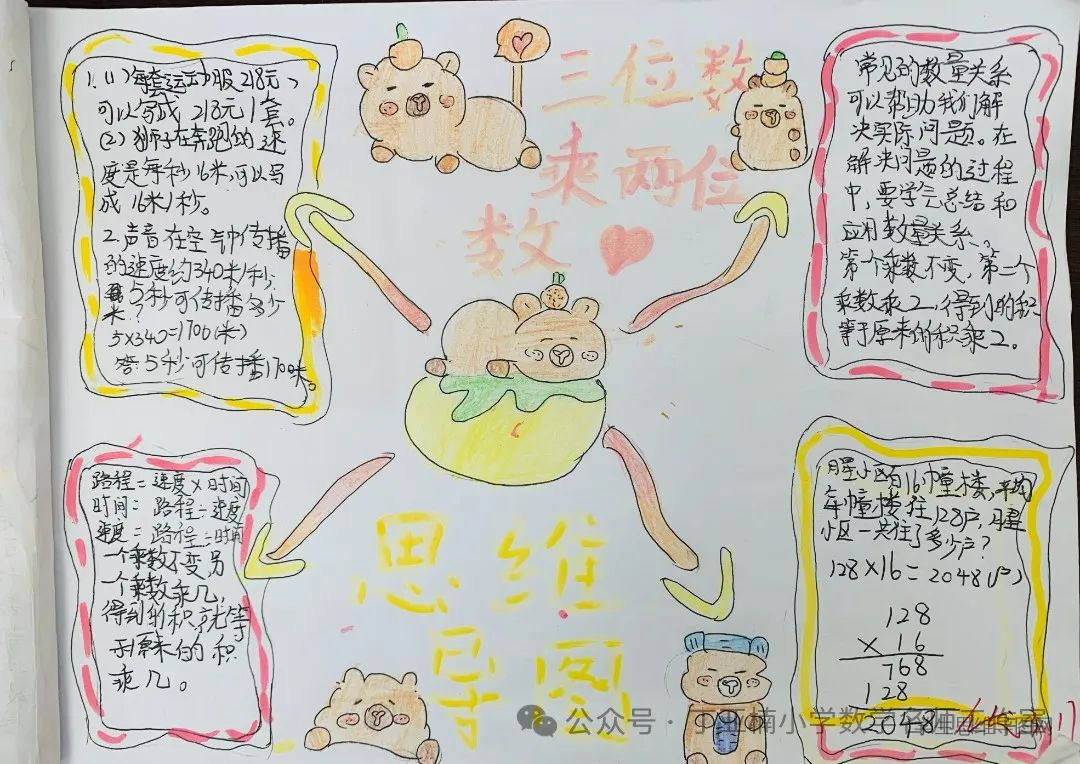 三位数
乘两位
数
1.(1)每套运动服218元,
可以写成 218元/套。
(2)狮子在奔跑的速
度是每秒16米,可以写
成 16米/秒。
2.声音在空气中传播
的速度约340米/秒,
5秒可传播多少
米?
5×340=1700(米)
答:5秒可传播1700米。
常见的数量关系
可以帮助我们解
决实际问题。在
解决问题的过程
中,要学会总结和
应用数量关系。
第一个乘数不变,第二个
乘数乘2,得到的积
等于原来的积乘2。
路程=速度×时间
时间= 路程÷速度
速度= 路程÷时间
一个乘数不变,另
一个乘数乘几,
得到的积就等
于原来的积
乘几。
小区有16幢楼,平均
每幢楼住128户,
小区一共住了多少户?
128×16=2048(户)
128
×16
768
128
2048
思维
导图
公众号·
楠小学数学